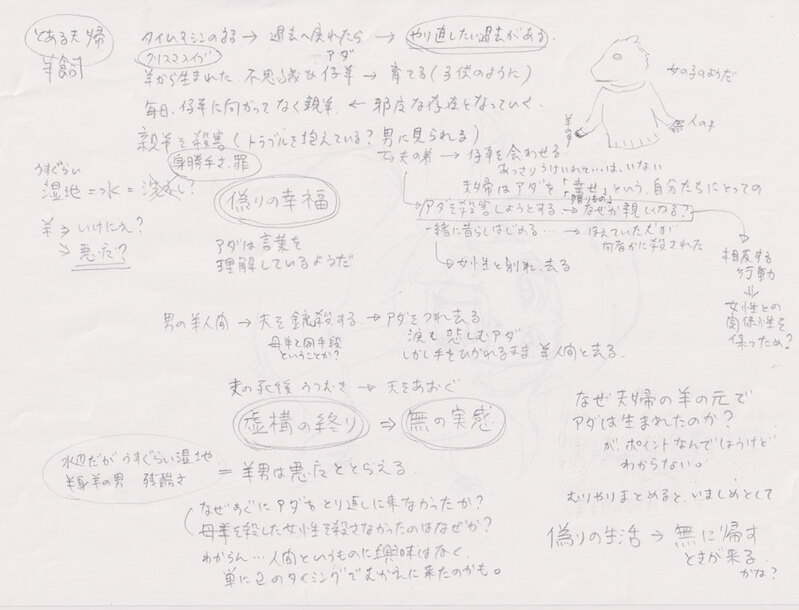 とある夫帰
羊飼
タイムマシンの話 → 過去へ戻れたら → やり直したい過去がある.
クリスマスイヴ
アダ
羊から生まれた 不思議な仔羊 → 育てる(子供のように)
毎日、仔羊に向かってなく親羊 ← 邪魔な存在となっていく.
親羊を殺害(トラブルを抱えている?男に見られる)
身勝手さ.罪
夫の弟 → 仔羊を会わせる.
あっさりうけいれては、いない
夫帰はアダを「幸せ」という、自分たちにとっての
「贈りもの」
アダを殺害しようとする → なぜか親しくなる?
一緒に暮らしはじめる… → ほえていた犬が
何者かに殺された
→ 女性と別れ、去る
相反する
行動
⇓
女性との
関係性を
保つため?
女の子のようだ
羊の手
人の手
うすぐらい
湿地=水=
羊⇒いけにえ?
⇒悪魔?
偽りの幸福
アダは言葉を
理解しているようだ
男の羊人間 → 夫を銃殺する → アダをつれ去る
母羊と同手段
ということか?
涙も.悲しむアダ
しかし手をひかれるまま.羊人間と去る.
夫の死後 うつむき → 天をあおぐ
虚構の終り ⇒ 無の実感
水辺だが うすぐらい湿地
半身羊の男 残酷さ
= 羊男は悪魔ととらえる
なぜすぐにアダをとり返しに来なかったか?
母羊を殺した女性を殺さなかったのはなぜか?
わからん…人間というものに興味はなく、
単にこのタイミングでむかえに来たのかも。
なぜ夫帰の羊の元で
アダは生まれたのか?
が、ポイントなんでしょうけど
わからない。
むりやりまとめると、いましめとして
偽りの生活 → 無に帰す
ときが来る
かな?